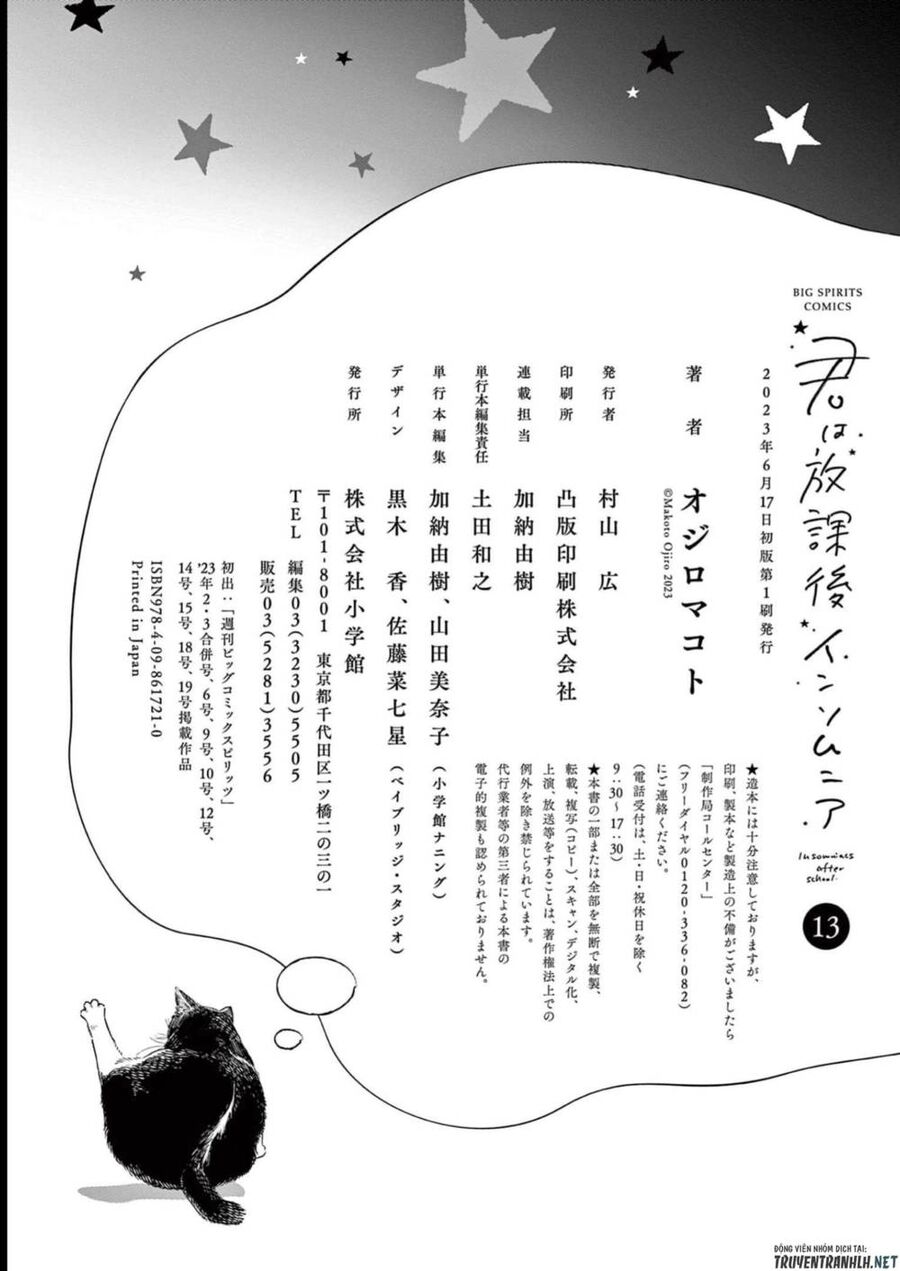 BIG SPIRITS
COMICS
君は放課後インソムニア
Insomniacs
after
school.
13
2023年6月17日初版第1刷発行
著者 オジロマコト
©Makoto Ojiro 2023
発行者 村山 広
印刷所 凸版印刷株式会社
連載担当 加納由樹
単行本編集責任 土田和之
単行本編集 加納由樹、山田美奈子(小学館ナニング)
デザイン 黒木 香、佐藤菜七星(ベイブリッジ・スタジオ)
発行所 株式会社小学館
〒101-8001 東京都千代田区一ツ橋二の三の一
TEL 編集03(3230)5505
販売03(5281)3556
初出:「週刊ビッグコミックスピリッツ」
'23年2・3合併号、6号、9号、10号、12号、
14号、15号、18号、19号掲載作品
ISBN978-4-09-861721-0
Printed in Japan
★造本には十分注意しておりますが、
印刷、製本など製造上の不備がございましたら
「制作局コールセンター」
(フリーダイヤル0120-336-082)
にご連絡ください。
(電話受付は、土・日・祝休日を除く
9:30〜17:30)
★本書の一部または全部を無断で複製、
転載、複写(コピー)、スキャン、デジタル化、
上演、放送等をすることは、著作権法上での
例外を除き禁じられています。
代行業者等の第三者による本書の
電子的複製も認められておりません。
ĐỘNG VIÊN NHÓM DỊCH TẠI:
TRUYENTRANHLH.NET